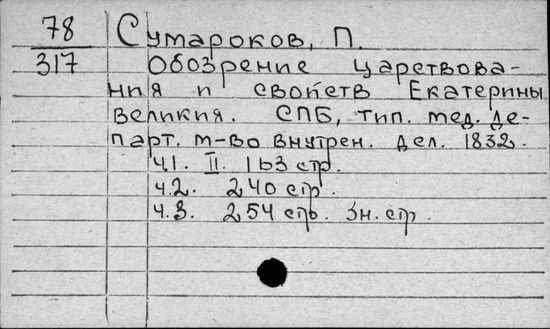 78 Сумароков, П.
317 Обозрение царствова-
ния и свойств Екатерины
Великия. СПБ, тип. мед. де-
парт. м-во внутрен. дел. 1832.
ч.1. II. 163 стр.
ч.2. 240 стр.
ч.3. 254 стр. 3н. стр.